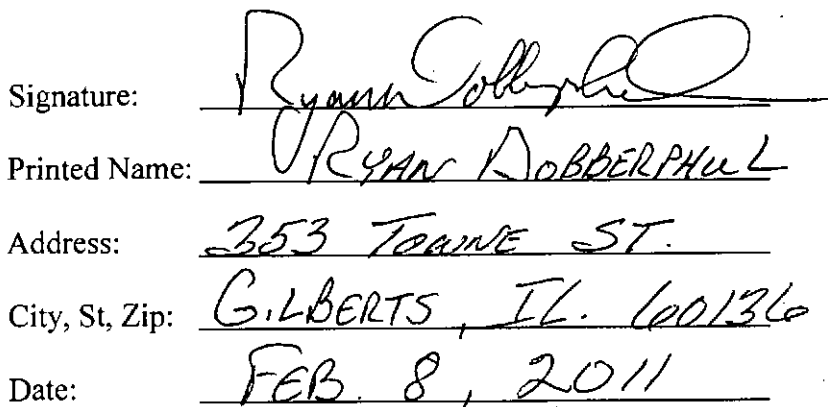 Signature: Ryan Dobberphul
Printed Name: RYAN DOBBERPHUL
Address: 353 TOWNE ST.
City, St, Zip: GILBERTS, IL. 60136
Date: FEB. 8, 2011